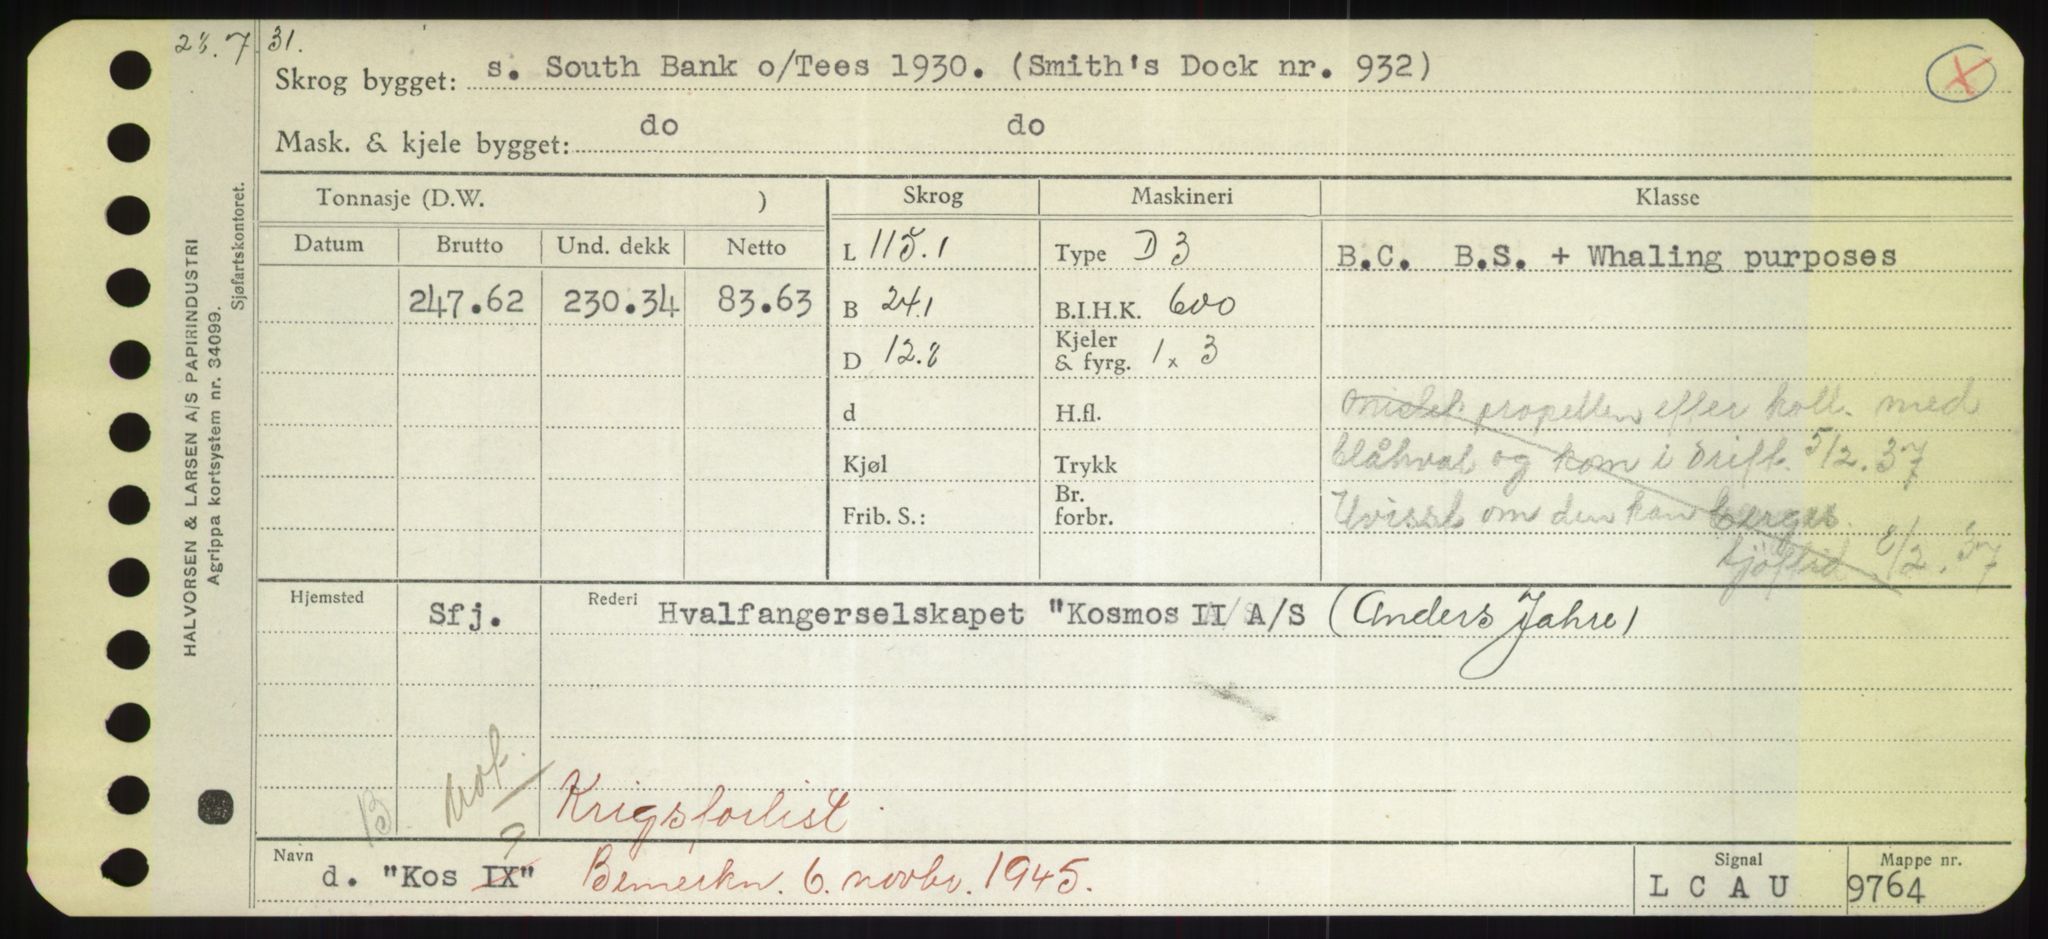 28.7 31.
Skrog bygget: s. South Bank o/Tees 1930. (Smith's Dock nr. 932)
X
Mask. & kjele bygget: do do
HALVORSEN & LARSEN A/S PAPIRINDUSTRI
Agrippa kortsystem nr. 34099.
Sjøfartskontoret.
Tonnasje (D.W. ) Skrog Maskineri Klasse
Datum Brutto Und. dekk Netto
L 115.1 Type D 3 B.C. B.S. + Whaling purposes
247.62 230.34 83.63 B 24.1 B.I.H.K. 600
D 12.8 Kjeler & fyrg. 1 x 3
d H.fl. mistet propellen efter koll. med
Kjøl Trykk blåhval og kom i drift. 5/2.37
Frib. S.: Br. forbr. Uvisst om den kan berges.
8/2.37
Hjemsted Sfj. Rederi Hvalfangerselskapet "Kosmos II A/S (Anders Jahre)
B
Krigsforlist
Navn d. "Kos IX" 9 Bemerkn. 6. novbr. 1945. Signal L C A U Mappe nr. 9764